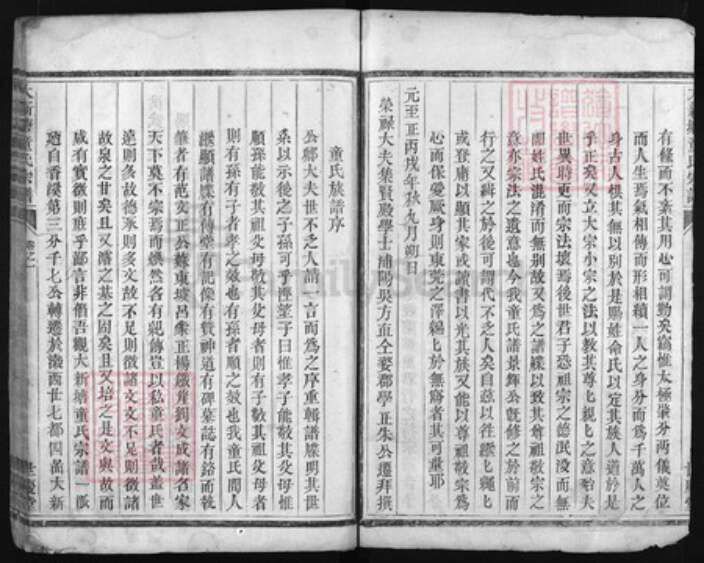 有條而不紊其用心可謂勤矣竊惟太極肇分兩儀奠位
而人生焉氣相傳而形相續一人之身分而爲千萬人之
身古人想其無以別於是賜姓命氏以定其族人道於是
乎正矣又立大宗小宗之法以教其尊匕親匕之意始夫
世異時更而宗法壞焉後世君子恐祖宗之德泯沒而無
聞姓氏混淆而無別故又爲之譜牒以致其尊祖敬宗之
意亦宗法之遺意也今我童氏譜景輝公旣修之於前而
行之又緝之於後可謂代不乏人矣自茲以往繼匕繩匕
或登庸以顯其家或讀書以光其族又能以尊祖敬宗爲
心而保愛厥身則東莞之澤綿匕於無窮者其可量耶
元至正丙戌年秋九月朔日
榮祿大夫集賢殿學士浦陽吳方直仝婺郡學正朱公遷拜撰
童氏族譜序
公卿大夫世不乏人請一言而爲之序重輯譜牒明其世
系以示後之子孫可乎溼望子曰惟孝子能敬其父母惟
順孫能敬其祖父母敬其父母者則有子敬其祖父母者
則有孫有子者孝之效也有孫者順之效也我童氏聞人
縱顯譜牒有傳堂有記像有贊神道有碑墓誌有銘而執
筆者有范文正公蘇東坡呂
天下莫不宗焉而煥然各有親傳豈以私童氏者哉蓋世
遠則多故德承則多文故不足則徵諸文文不足則徵諸
故泉之甘矣且又濬之基之固矣且又培之是文與故而
咸有實徵則庶乎鄙言非僭吾觀大新塘童氏宗譜一派
廼自香溪第三分千七公轉遷於瀫西世七都四啚大新
FamilySearch